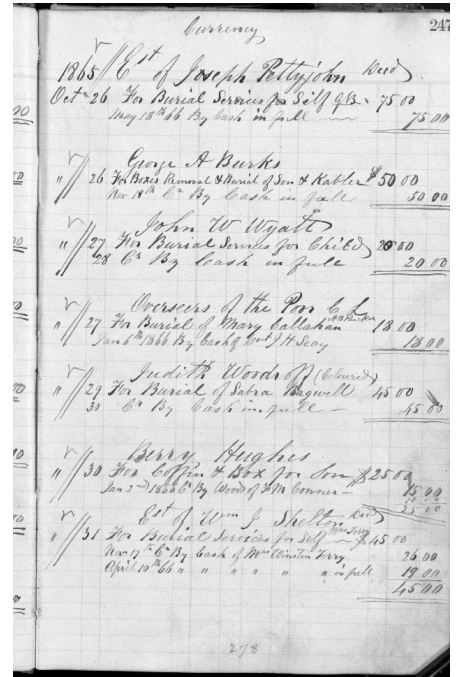 Currency 247
1865 Est of Joseph Pettyjohn Decd
Oct 26 For Burial Services for Self 75 00
May 18th 66 By Cash in full 75 00
George A Burks
" 26 For Boxes Removal & Burial of Son & Kabler $50 00
Nov 18th Cr By Cash in full 50 00
John W Wyatt
" 27 For Burial Services for Child 20 00
28 Cr By Cash in full 20 00
Overseers of the Poor C L
" 27 For Burial of Mary Callahan 18 00
Jan 6th 1866 By Cash of J H Seay 18 00
Judith Woodroff (Coloured)
" 29 For Burial of Sabra Bagwell 45 00
30 Cr By Cash in full 45 00
Berry Hughes
" 30 For Coffin & Box for Son $25 00
Jan 2nd 1866 Cr By Wood of F M Conner 15 00
10 00
25 00
Est of Wm J Shelton Decd
" 31 For Burial Services for Self $45 00
Nov 17th Cr By Cash of Mrs Winston Terry 26 00
April 10th 66 " " " " " " in full 19 00
45 00
278